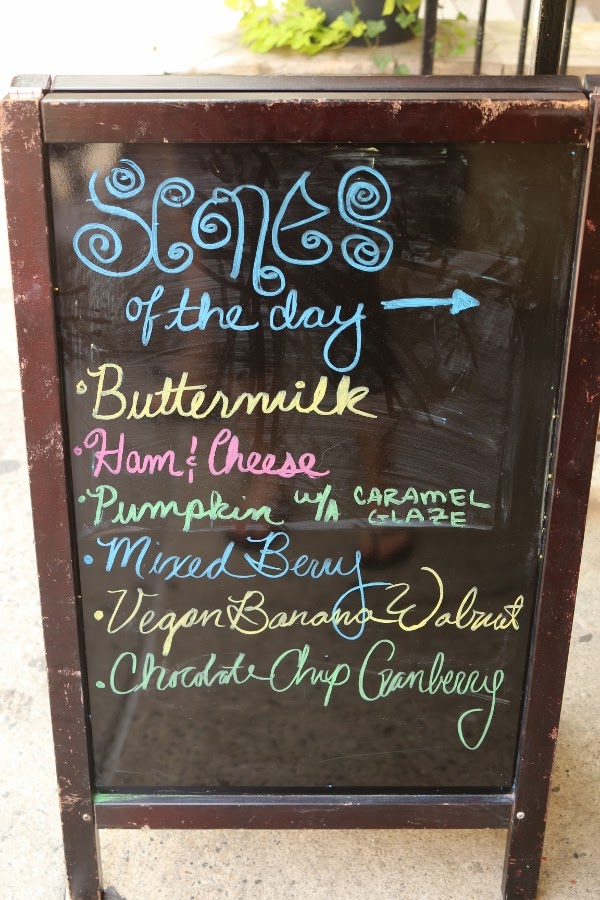 Scones
of the day →
• Buttermilk
• Ham & Cheese
• Pumpkin w/ CARAMEL
GLAZE
• Mixed Berry
• Vegan Banana Walnut
• Chocolate Chip Cranberry